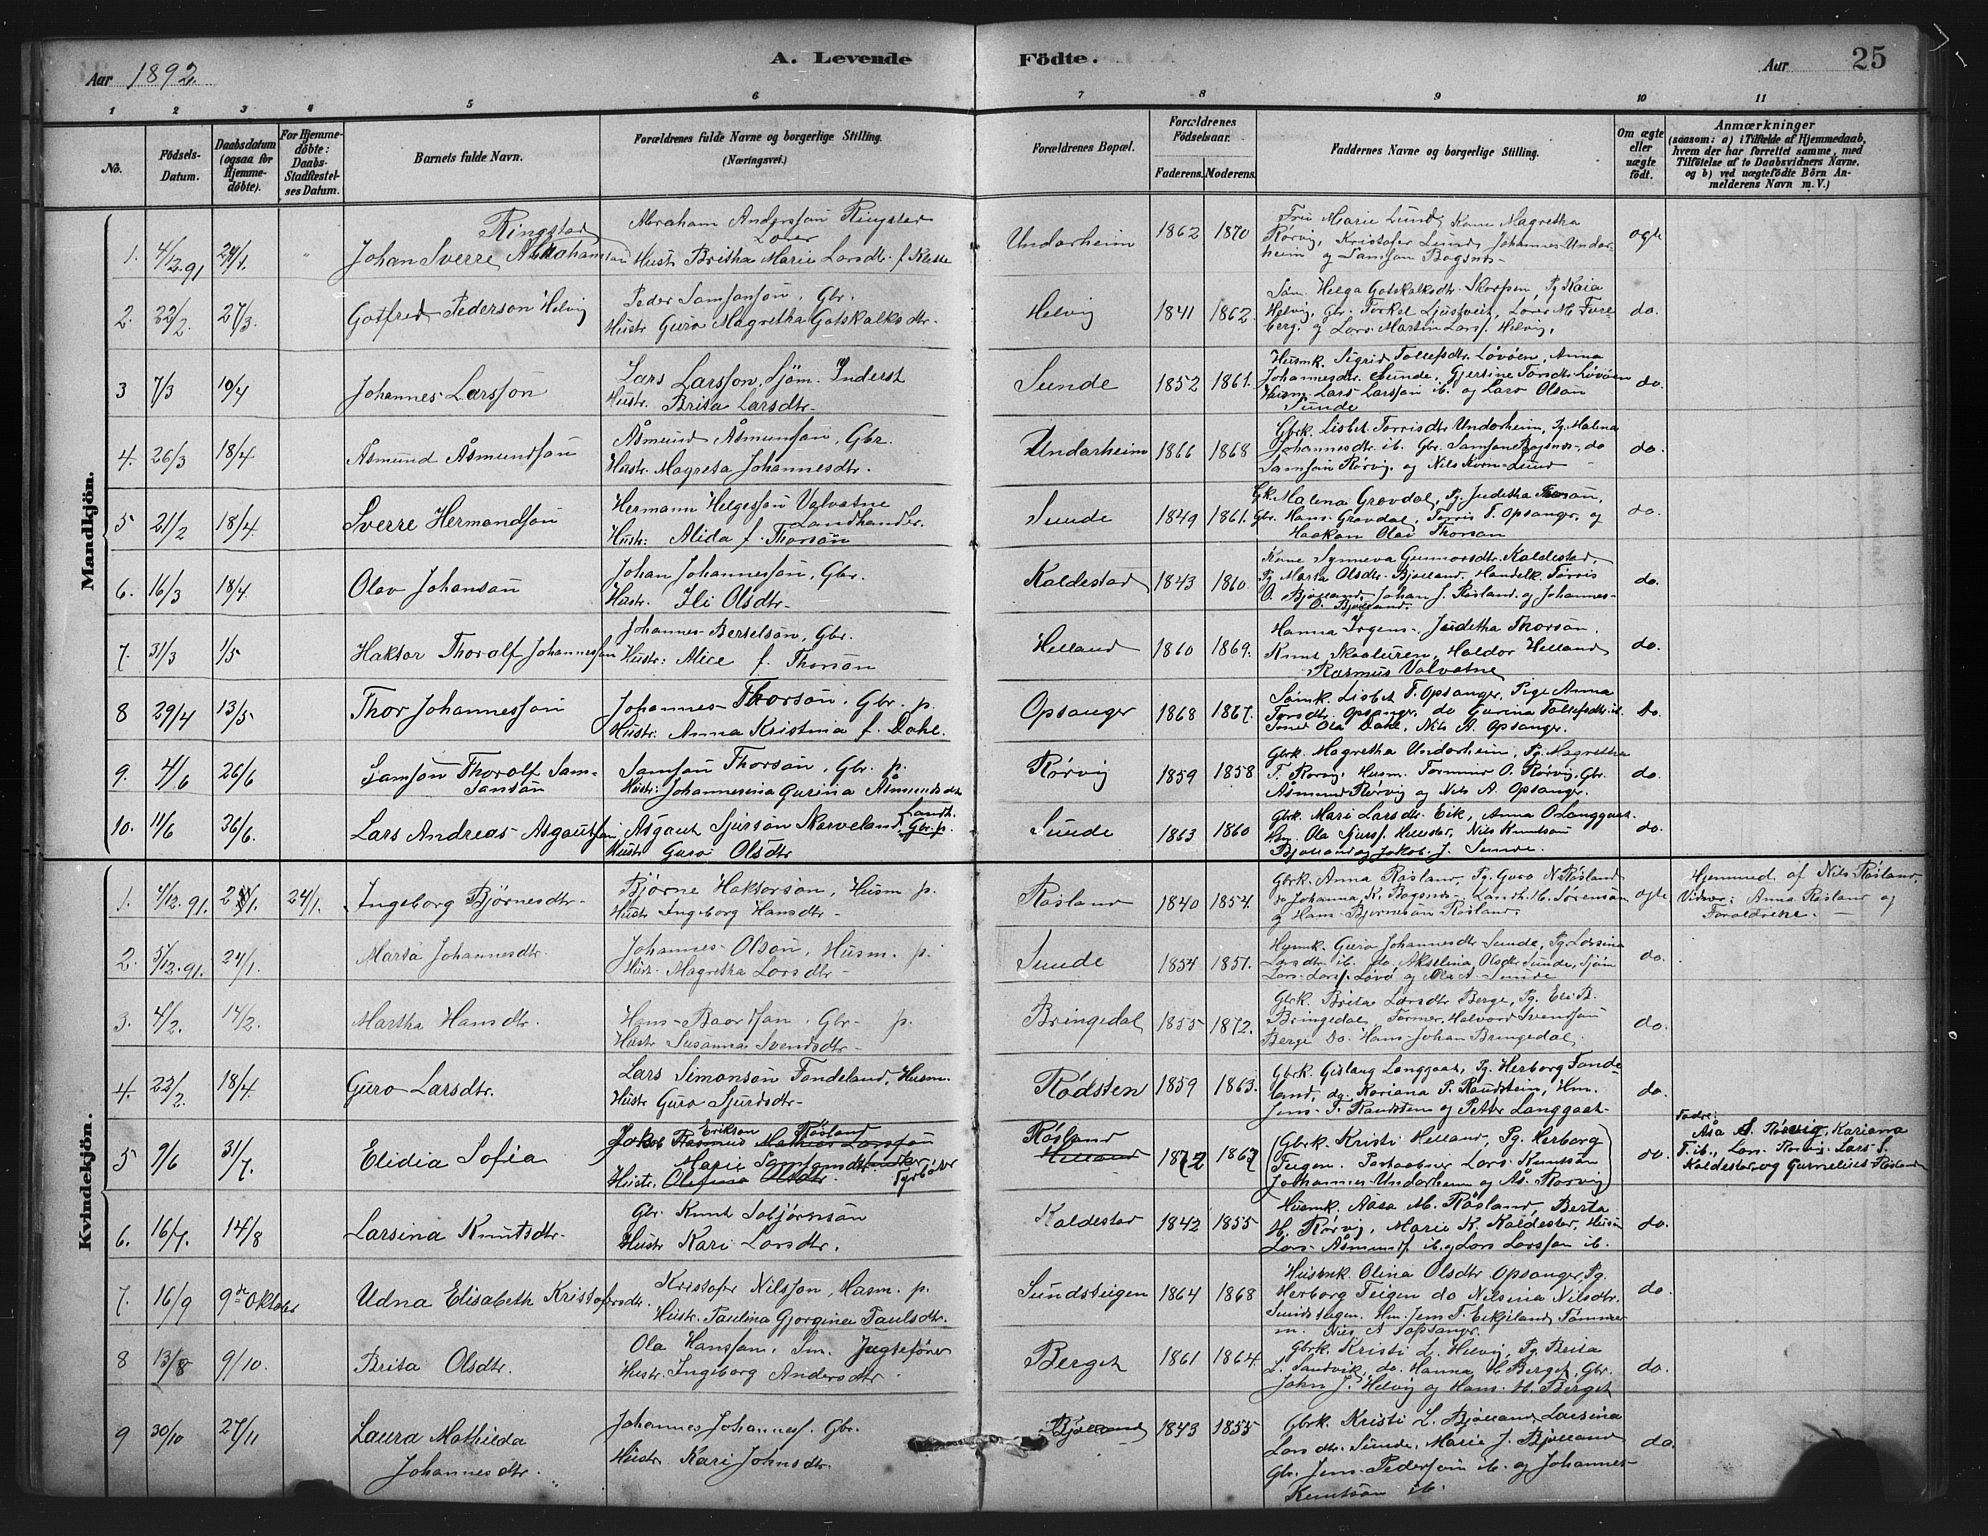 Aar 1892.
A. Levende Födte.
Aar 25
1 2 3 4 5 6 7 8 9 10 11
No.
Födsels-Datum.
Daabsdatum (ogsaa for Hjemme-döbte).
For Hjemme-döbte: Daabs-Stadfæstel-ses Datum.
Barnets fulde Navn.
Forældrenes fulde Navne og borgerlige Stilling. (Næringsvei.)
Forældrenes Bopæl.
Forældrenes Födselsaar.
Faderens. Moderens.
Faddernes Navne og borgerlige Stilling.
Om ægte eller uægte födt.
Anmærkninger
(saasom: a) i Tilfælde af Hjemmedaab,
hvem der har forrettet samme, med
Tilföielse af to Daabsvidners Navne,
og b) ved uægtefödte Börn An-
melderens Navn m. V.)
Mandkjön.
1. 4/12.91 24/1. " Johan Sverre Abrahamson Ringstad
Abraham Anderssøn Ringstad
Hustr. Britha Marie Larsdt. f.
Undarheim 1862 1870
Kristofer Lund, Johannes Undar-
heim og Samson Bogsnes
ægte
2. 22/2. 27/3. Gotfred Pederson Helvig
Peder Samsonsøn, Gbr.
Hustr. Guro Magretha Gotskalksdtr.
Helvig 1841 1862.
Helvig, Gbr. Torkel Ljustveit,
og Lars Martin Larss. Helvig,
do.
3 7/3 10/4 Johannes Larssøn
Lars Larssøn, Sjøm. Inderst
Hustr. Brita Larsdtr.
Sunde 1852 1861.
Husmk. Sigrid Tollefsdtr. Løvøen, Anna
Johannesdtr. Sunde, Gjertine Torsdtr. Løvøen
Husm. Lars Larssøn ib. og Lars Olson
Sunde
do.
4. 26/3 18/4 Åsmund Åsmundsøn
Åsmund Åsmunsøn, Gbr.
Hustr. Magreta Johannesdtr.
Undarheim 1866 1868
Gbrk. Lisbet Torrisdtr Undarheim, Pg. Malena
Johannesdtr ib. Gbr. Samson Bogsnes, do
Samson Rørvig, og Nils Lund
do.
5 21/2 18/4 Sverre Hermandsøn
Hermann Helgesøn Valvatne
Landhandler.
Hustr: Alida f. Thorsøn
Sunde 1849 1861.
Gk. Malena Gravdal, Pg. Juditha Thorsøn,
Gbr. Hans Gravdal, Torris T. Opsanger, og
Haakon Olai Thorsøn
do.
6. 16/3 18/4 Olav Johansøn
Johan Johannessøn, Gbr.
Hustr. Ili Olsdtr.
Kaldestad 1843 1860.
Kone Synneva Gunnarsdtr. Kaldestad,
Pg. Marta Olsdtr. Bjelland. Handelk. Torris
O. Bjelland, Johan J. Røsland og Johannes
O. Bjelland.
do.
7. 31/3 1/5 Haktor Thoralf Johannessøn
Johannes Bertelsøn, Gbr.
Hustr: Alice f. Thorsøn
Helland 1860 1869.
Hanna Irgens, Juditha Thorsøn,
Knut Skaaluren, Haldor Helland
Rasmus Valvatne
do.
8 29/4 13/5 Thor Johannessøn
Johannes Thorsøn, Gbr. p.
Hustr. Anna Kristina f. Dahl.
Opsanger 1868 1867.
Lisbet T. Opsanger, Pige Anna
Torsdtr. Opsanger, do Gurina Tollefsdtr. ib.
Ola Dahl, Nils A. Opsanger.
do.
9. 4/6 26/6 Samson Thoralf Sam-
sonsøn
Samson Thorsøn, Gbr. p.
Hustr: Johannesina Gurina Åsmundsdtr
Rørvig 1859 1858
Gbrk. Magretha Undarheim, Pg. Magretha
T. Rørvig, Husm. Tormod O. Rørvig, Gbr.
Åsmund Rørvig og Nils A. Opsanger.
do.
10. 11/6 36/6. Lars Andreas Asgautsøn
Asgaut Sjursøn Skarveland, Landh. Gbr. p.
Hustr Guro Olsdtr
Sunde 1863 1860
Gbrk. Mari Larsdtr. Eik, Anna O. Langgaat
Ola Sjurss. Hellister, Nils Knutsøn
Bjelland og Jakob J. Sunde.
do.
Kvindekjön.
1. 4/12.91. 24/1. Ingeborg Bjørnesdtr.
Bjørne Haktorsøn, Husm. p.
Hustr Ingeborg Hansdtr.
Røsland 1840 1854.
Gbrk. Anna Røsland, Pg. Guro N. Røsland
do Johanna K. Bogsnes, Landh. M. Sørensøn
og Hans Bjørnesøn Røsland.
ægte
Hjemmed. af Nils Røsland,
Vidner: Anna Røsland og
Forældrene.
2. 5/12.91. 24/1. Marta Johannesdtr.
Johannes Olson, Husm. p.
Hustr. Magretha Larsdtr
Sunde 1854 1851.
Husmk. Guro Johannesdtr Sunde, Pg. Larsina
Larsdtr ib. do. Akselina Olsdtr Sunde, Sjøm
Lars Larss. Løvø og Ola A. Sunde
do.
3. 4/2. 14/2. Martha Hansdtr.
Hans Baardson, Gbr. p.
Hustr Susanna Svendsdtr
Bringedal 1855 1872.
Gbrk. Brita Larsdtr Berge, Pg. Eli B.
Bringedal, Halvard Svendsøn
Berge do. Hans Johan Bringedal.
do.
4. 22/2. 18/4 Guro Larsdtr.
Lars Simonsøn Tondeland, Husm.
Hustr Guro Sjurdsdtr
Rødsten 1859 1863.
Gbrk. Gislaug Langgaat, Pg. Herborg Tonde-
land, do. Kariana P. Raudstein, Hm.
Jens T. Raudstein og Petter Langgaat
do.
5 9/6 31/7. Elidia Sofia
Jakob Erikson Røsland
Hustr. Marie
Fyrbøter
Røsland 1872 1867
(Gbrk. Kristi Helland, Pg. Herborg
Teigen. Lars Knutsøn
Johannes Undarheim og Ås. Rørvig)
do.
Fadre:
Åsa S. Rørvig, Kariana
T. ib., Lars Rørvig, Lars S.
Kaldestad, og Gurnelius Røsland
6. 16/7. 14/8 Larsina Knutsdtr.
Gbr. Knut Sebjørnsøn
Hustr Kari Larsdtr.
Kaldestad 1842 1855
Husmk. Aasa M. Røsland, Berta
H. Rørvig, Marie K. Kaldestad, Husm
Lars Åsmunds. ib. og Lars Larsson ib.
do.
7. 16/9 9de Oktober Udna Elisabeth Kristofersdtr.
Kristofer Nilssøn, Husm. p.
Hustr. Paulina Gjorgina Paulsdtr.
Sundsteigen 1864 1868
Husmk. Olina Olsdtr Opsanger, Pg.
Herborg Teigen do Nilsina Nilsdtr.
Sundsteigen. Hm. Jens T. Eikjeland, Tømmer
m. Nils A. Opsanger.
do.
8 13/8 9/10. Brita Olsdtr.
Ola Hanssøn, Sm. Jagtefører
Hustr. Ingeborg Andersdtr.
Berget 1861 1864
Gbrk. Kristi L. Helvig, Pg. Brita
L. Sandvik, do. Hanna H. Berget, Gbr.
John J. Helvig og Hans H. Berget
do.
9 30/10 27/11 Laura Mathilda
Johannesdtr.
Johannes Johanness. Gbr.
Hustr Kari Johnsdtr.
Bjelland 1843 1855
Gbrk. Kristi L. Bjelland, Larsina
Larsdtr. Sunde, Marie J. Bjelland
Gbr. Jens Pedersøn ib. og Johannes
Knutsøn ib.
do.